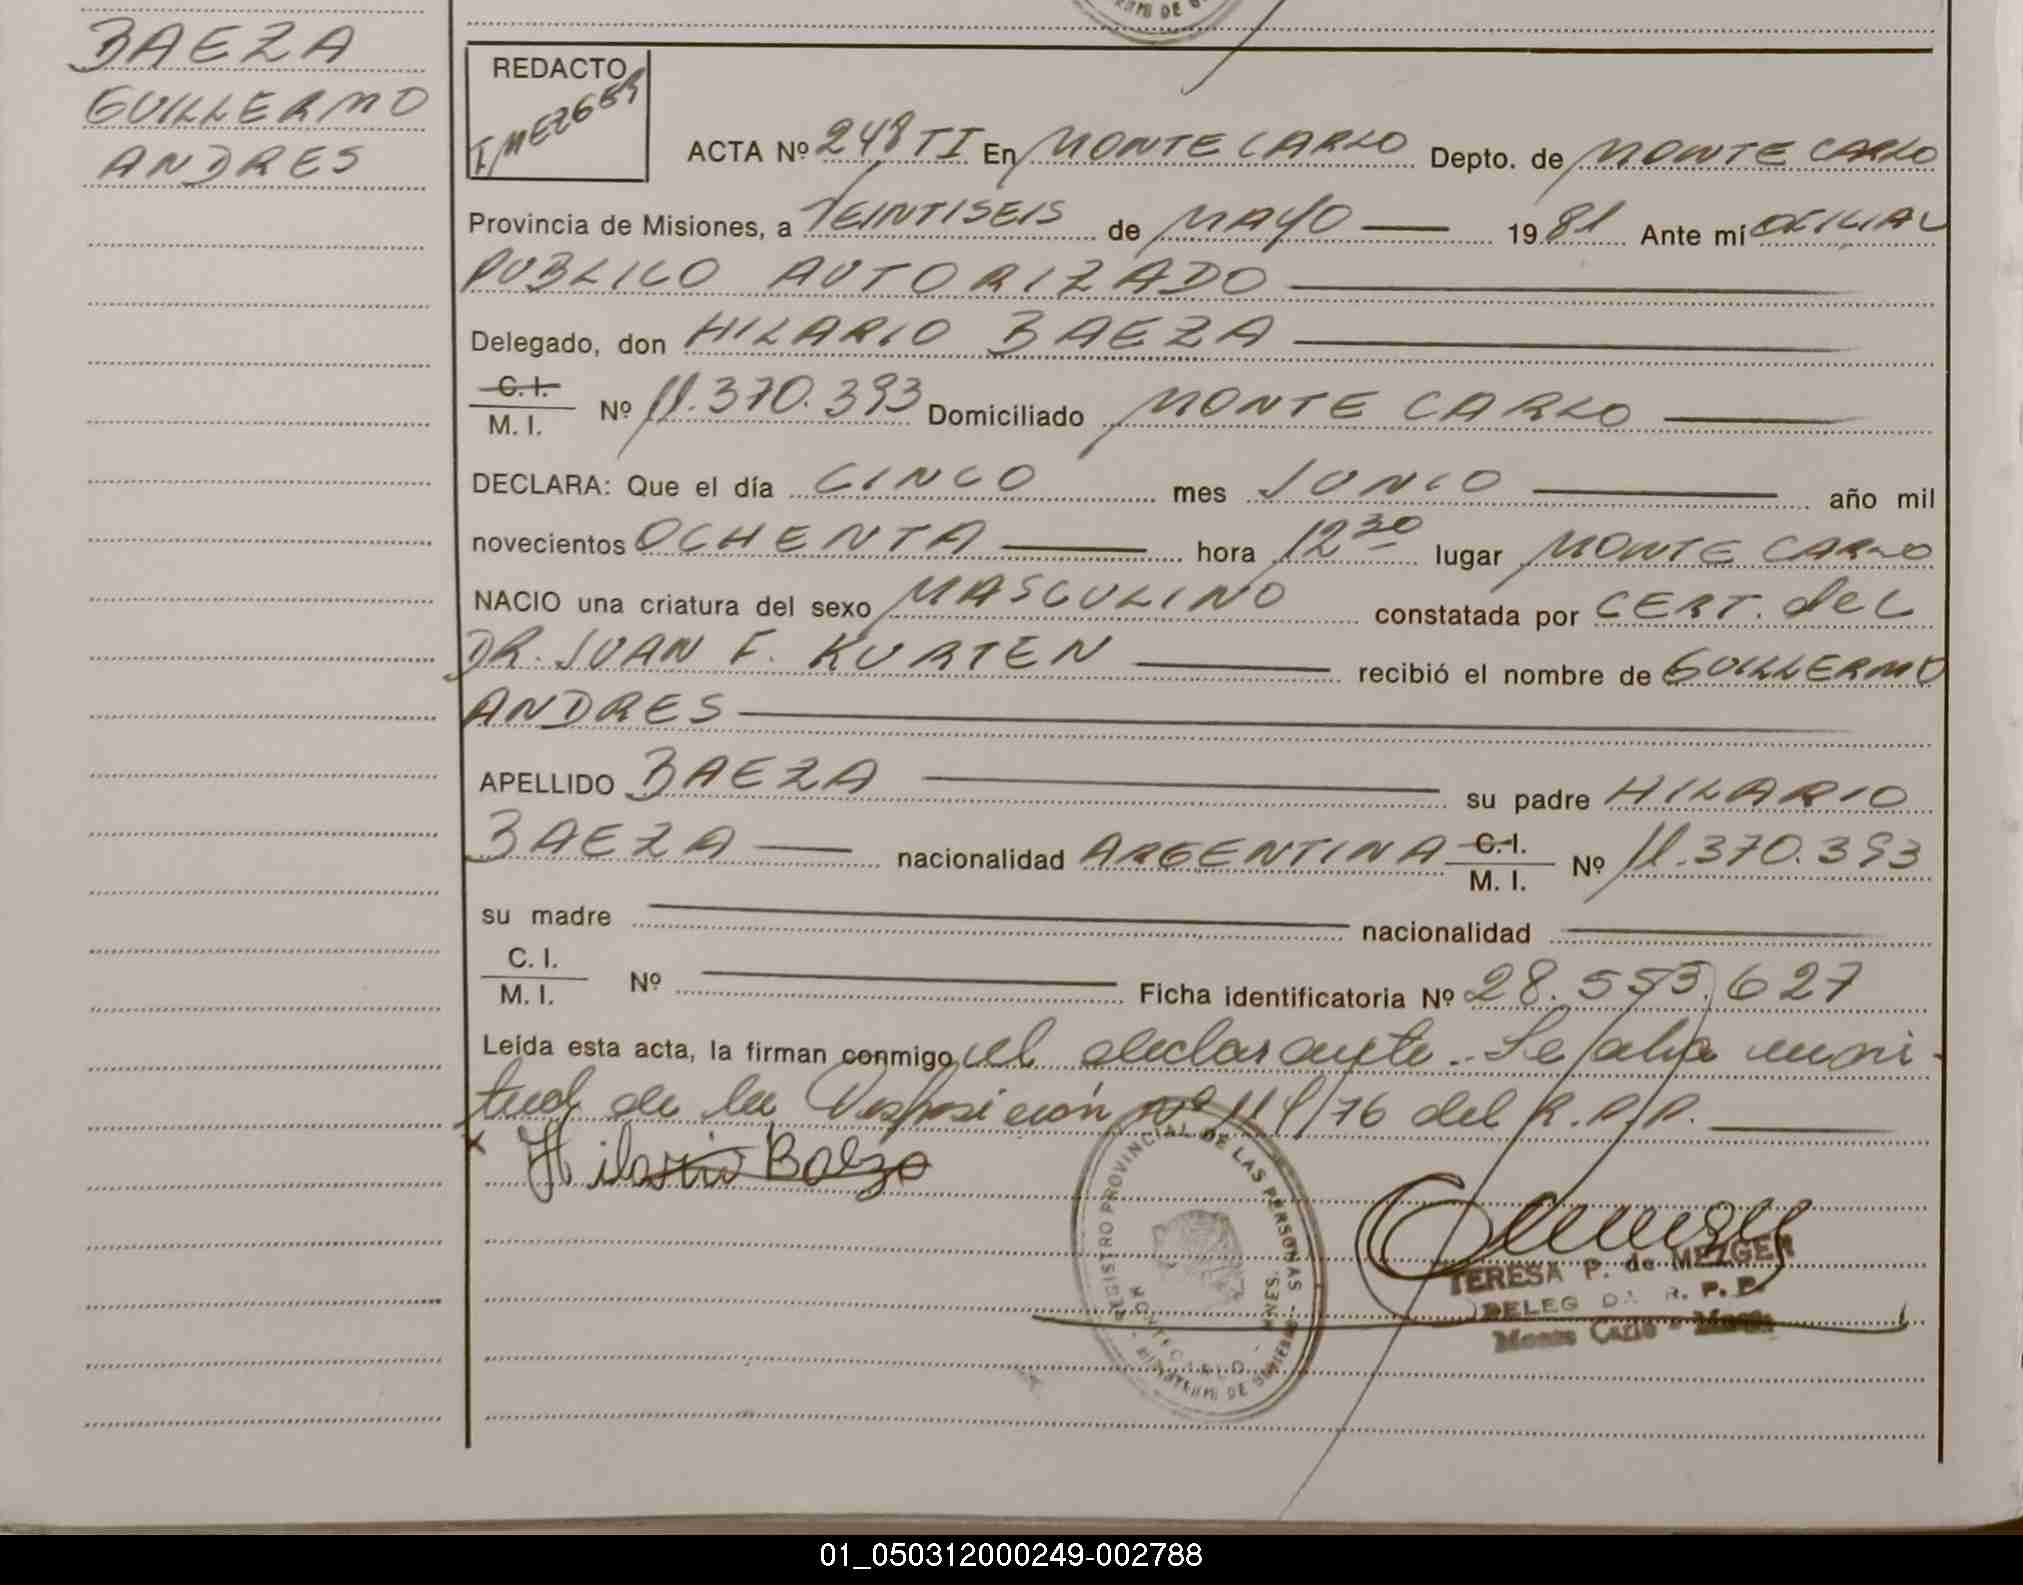 BAEZA
GUILLERMO
ANDRES
REDACTO
T/MEZGER
ACTA Nº 248 TI En MONTECARLO Depto. de MONTECARLO
Provincia de Misiones, a VEINTISEIS de MAYO 1981 Ante mí OFICIAL
PUBLICO AUTORIZADO
Delegado, don HILARIO BAEZA
C. I.
M. I.
Nº 11.370.393 Domiciliado MONTE CARLO
DECLARA: Que el día CINCO mes JUNIO año mil
novecientos OCHENTA hora 12 30 lugar MONTE CARLO
NACIO una criatura del sexo MASCULINO constatada por CERT. del
DR. JUAN F. KURTEN recibió el nombre de GUILLERMO
ANDRES
APELLIDO BAEZA su padre HILARIO
BAEZA nacionalidad ARGENTINA C. I. Nº 11.370.393
M. I.
su madre nacionalidad
C. I.
M. I.
Nº Ficha identificatoria Nº 28.553.627
Leída esta acta, la firman conmigo el declarante.. Se labra en vir-
tud de la Disposición nº 114/76 del R.P.P.
x Hilario Baeza
REGISTRO PROVINCIAL DE LAS PERSONAS
MONTECARLO
MINISTERIO DE GOBIERNO
TERESA P. de MEZGER
DELEGADA R. P. P.
Monte Carlo - Mnes.
01_050312000249-002788